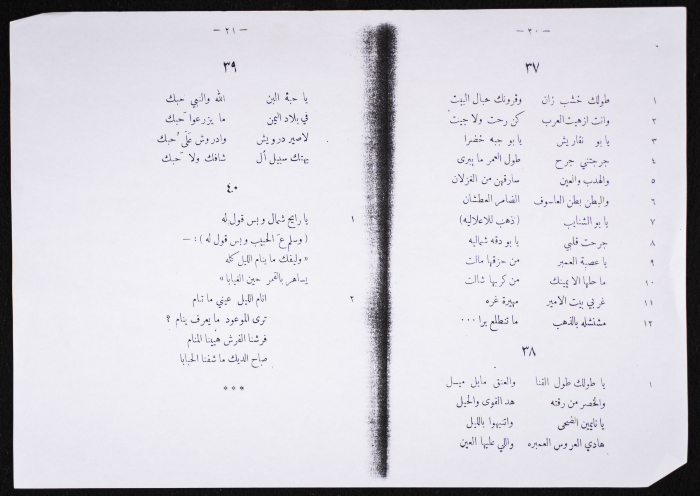 — ٢٠ —
٣٧
١ طولك خشب زان وقرونك حبال البيت
٢ وانت ازهيت العرب كن رحت ولا جيت
٣ يا بو نقاريش يا بو جبه خضرا
٤ جرجتني جرح طول العمر ما يبرى
٥ والهدب والعين سارقهن من الغزلان
٦ والبطن بطن العاسوف الضامر العطشان
٧ يا بو الشنايب (ذهب للاعلاليه)
٨ جرحت قلبي يا بو دقه شماليه
٩ يا عصبة العمبر من حزقها مالت
١٠ ما حلها الا يمينك من كربها شالت
١١ غربي بيت الامير مهيرة غره
١٢ مشنشله بالذهب ما تنطلع برا ...
٣٨
١ يا طولك طول القنا والعنق مايل ميل
والخصر من رقته هد القوى والحيل
يا نايمين الضحى وانتبهوا بالليل
هادي العروس العمبره واللي عليها العين
— ٢١ —
٣٩
يا حبة البن الله والنبي حبك
في بلاد اليمن ما يزرعوا حبك
لاصير درويش وادروش على حبك
سبيل أل شافك ولا حبك
٤٠
١ يا رايح شمال وبس قول له
( وسلم ع الحبيب وبس قول له ) : —
« وليفك ما ينام الليل كله
يساهر بالقمر حين الغيابا »
٢ انام الليل عيني ما تنام
ترى الموعود ما يعرف ينام ؟
فرشنا الفرش هيينا المنام
صباح الديك ما شفنا الحبابا
* * *